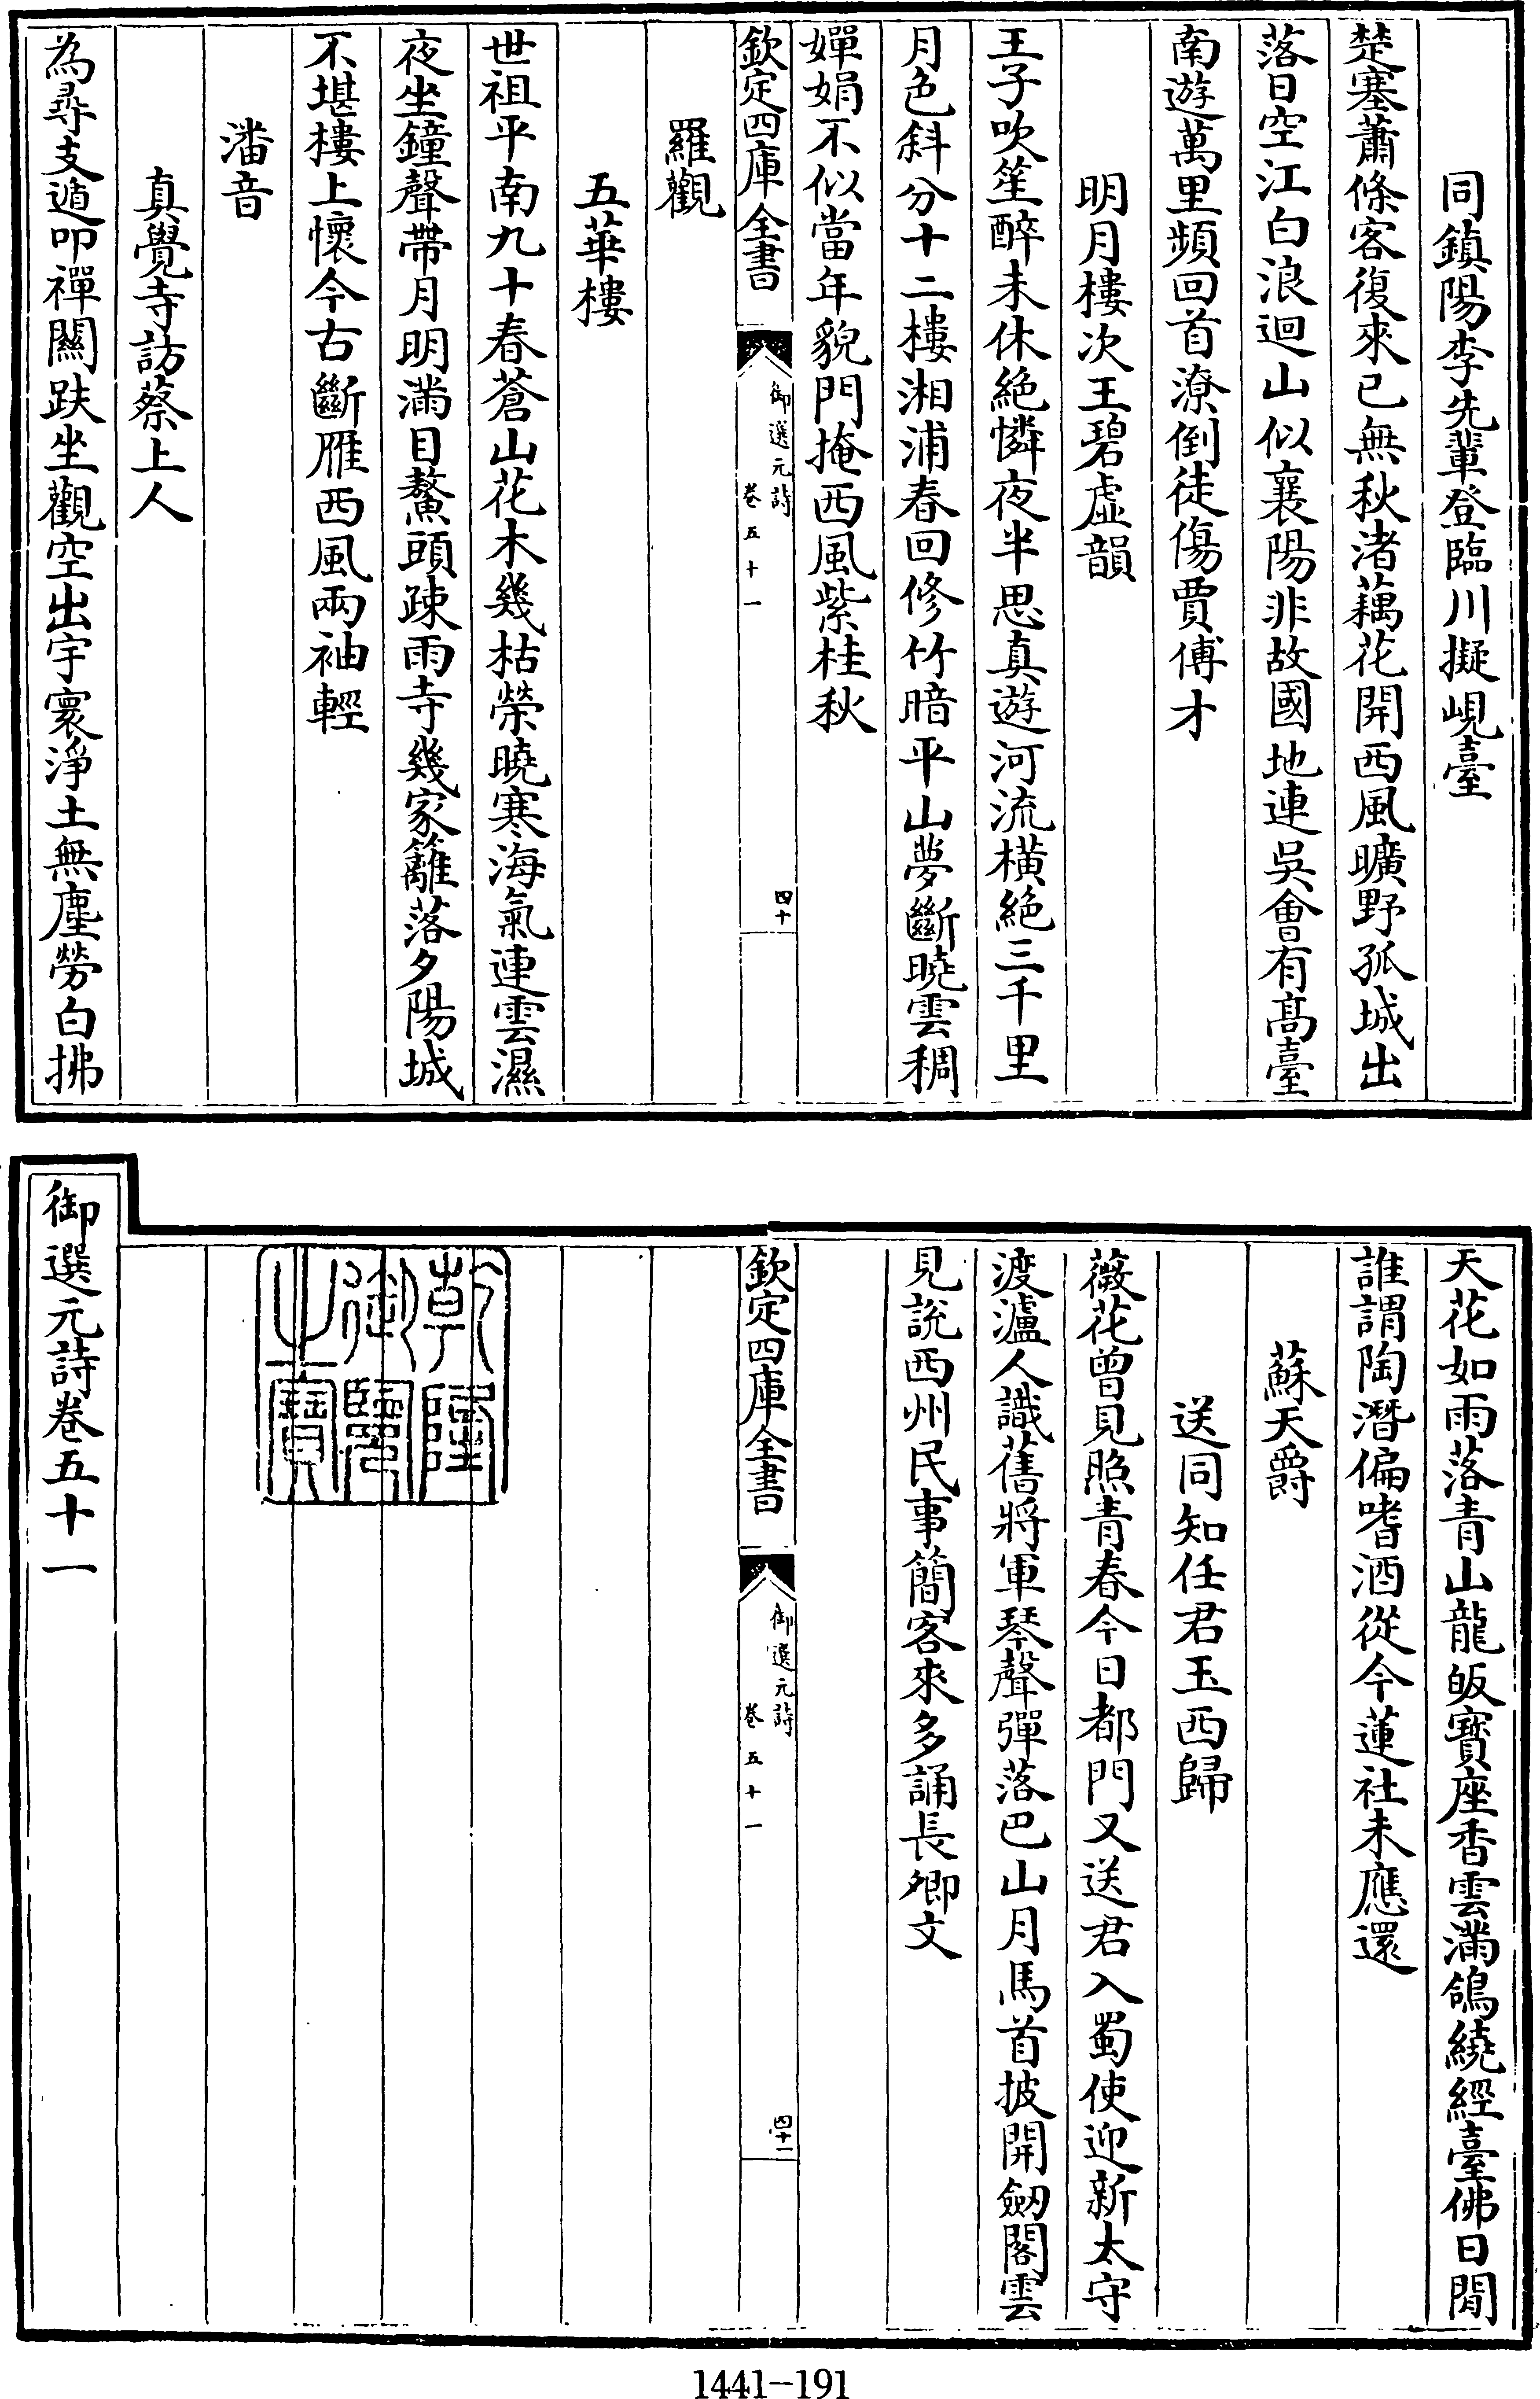 同鎮陽李先輩登臨川擬峴臺
楚塞蕭條客復來已無秋渚藕花開西風曠野孤城出
落日空江白浪迴山似襄陽非故國地連吳會有高臺
南遊萬里頻回首潦倒徒傷賈傅才
明月樓次王碧虛韻
王子吹笙醉未休絶憐夜半思真遊河流橫絶三千里
月色斜分十二樓湘浦春回修竹暗平山夢斷曉雲稠
嬋娟不似當年貌門掩西風紫桂秋
欽定四庫全書
御選元詩
卷五十一
四十
羅觀
五華樓
世祖平南九十春蒼山花木幾枯榮曉寒海氣連雲濕
夜坐鐘聲帶月明滿目鰲頭疎雨寺幾家籬落夕陽城
不堪樓上懷今古斷雁西風兩袖輕
潘音
真覺寺訪蔡上人
為尋支遁叩禪關趺坐觀空出宇寰淨土無塵勞白拂
天花如雨落青山龍皈寶座香雲滿鴿繞經臺佛日閒
誰謂陶潛偏嗜酒從今蓮社未應還
蘇天爵
送同知任君玉西歸
薇花曾見照青春今日都門又送君入蜀使迎新太守
渡瀘人識舊將軍琴聲彈落巴山月馬首披開劒閣雲
見說西州民事簡客來多誦長卿文
欽定四庫全書
御選元詩
卷五十一
四十一
乾隆
御覽
之寶
御選元詩卷五十一
1441-191